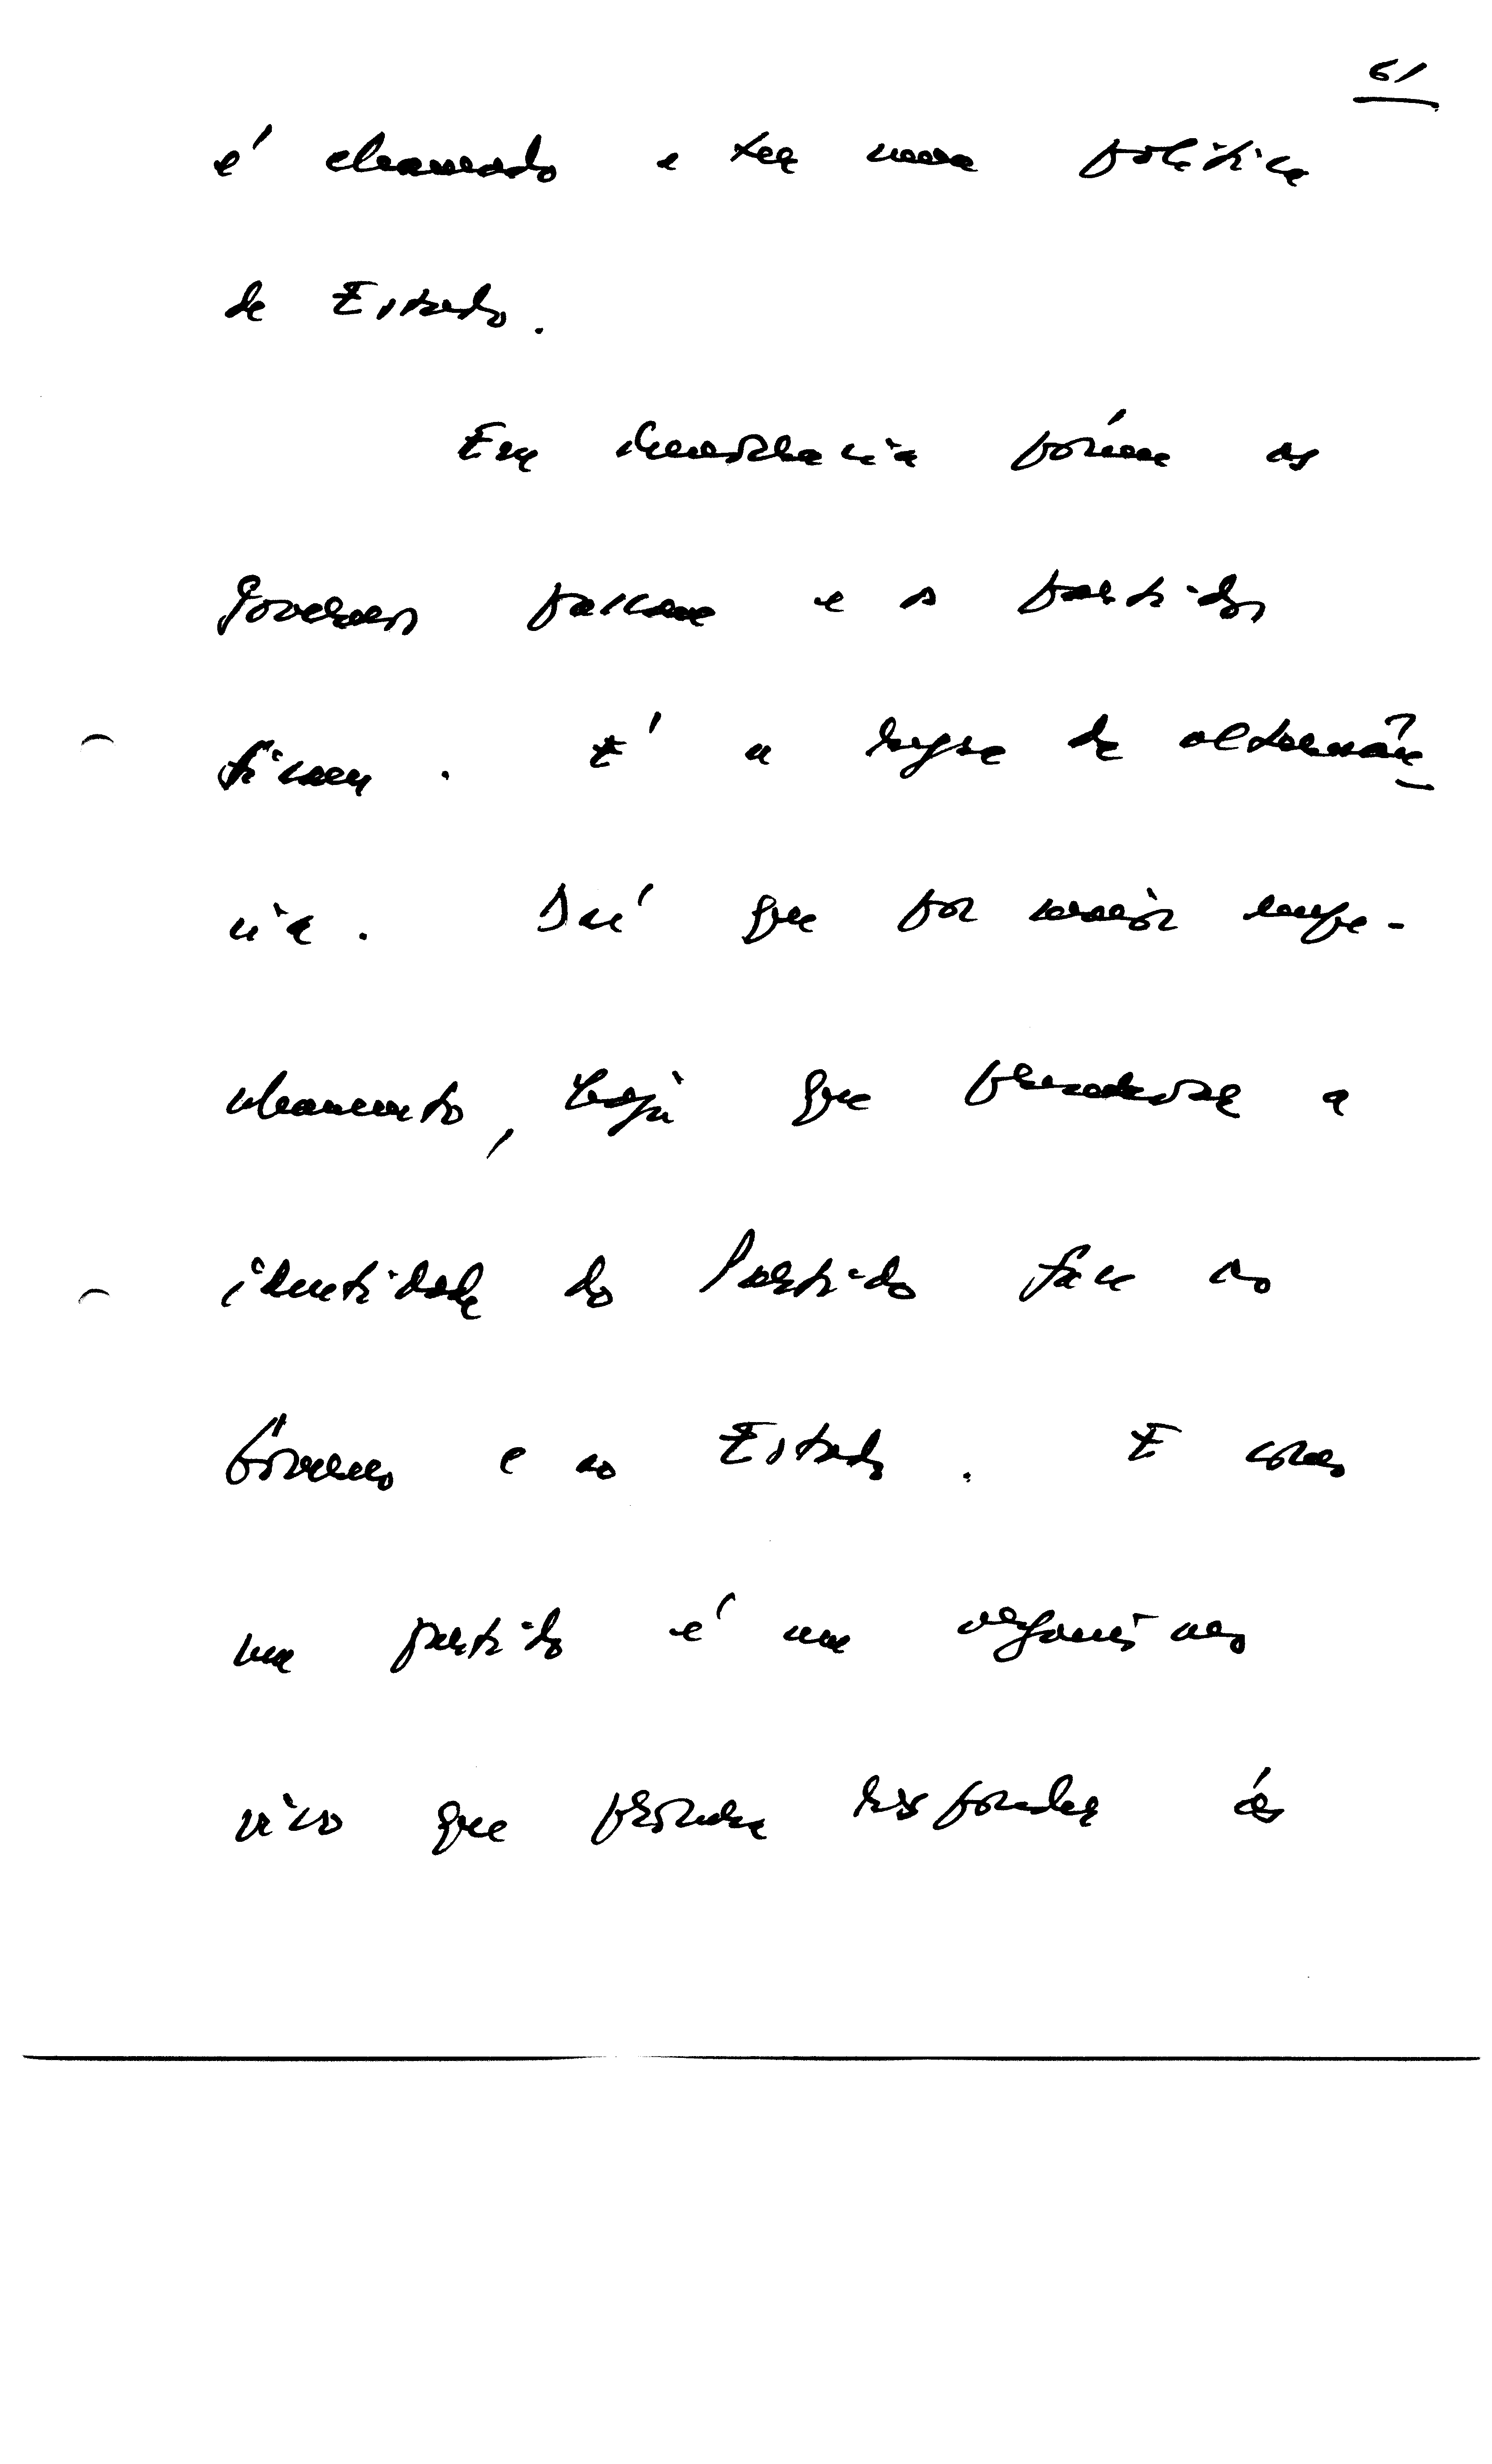 61
é chamado a ter uma política
de Estado.
Em democracia porém os
Governos passam e os partidos
ficam. É a regra da alternân
cia. Daí que por maior empe-
nhamento, haja que preservar a
identidade do Partido face ao
Governo e ao Estado. E como
um partido é um organismo
vivo que procura responder às